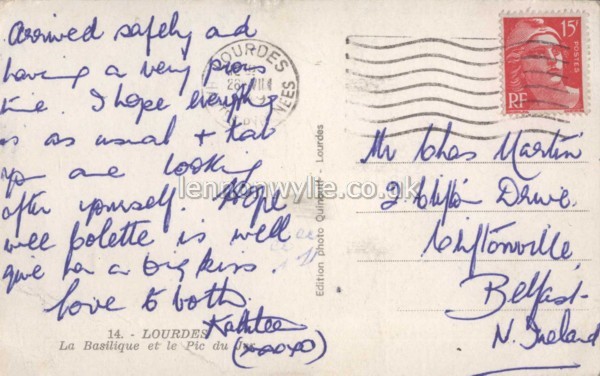 Arrived safely and
having a very pious
time. I hope everything
is as usual & that
you are looking
after yourself. Hope
wee Colette is well
give her a big kiss.
love to both.
Kathleen
(xooxo)
14. - LOURDES
La Basilique et le Pic du Jer
Edition photo Lourdes
LOURDES
15F
POSTES
RF
Mr Chas Martin
2 Clifton Drive.
Cliftonville,
Belfast
N. Ireland
lennonwylie.co.uk